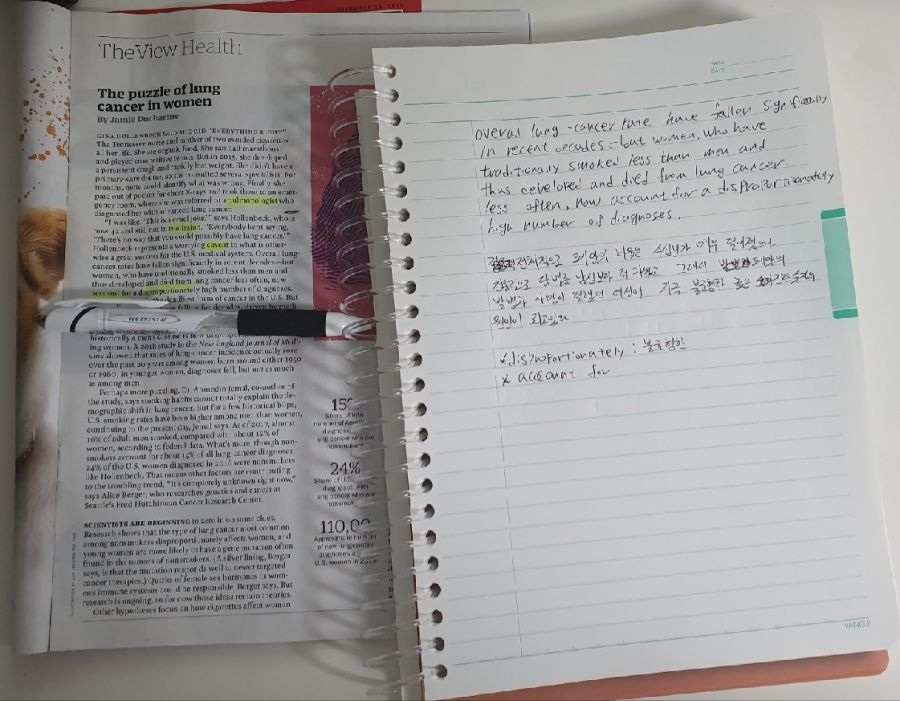 NOVEMBER
TheView Health
The puzzle of lung
cancer in women
By Jamie Ducharme
GINA HOLLENBECK SAID SHE DID "EVERYTHING RIGHT."
The Tennessee nurse and mother of two avoided cigarettes
all her life. She ate organic food. She ran half marathons
and played competitive tennis. But in 2015, she developed
a persistent cough and rapidly lost weight. She didn't have a
primary-care doctor, so she consulted several specialists. For
months, none could identify what was wrong. Finally she
paid out of pocket for chest X-rays and took them to an emer-
gency room, where she was referred to a pulmonologist who
diagnosed her with advanced lung cancer.
"I was like, 'This is a cruel joke,'" says Hollenbeck, who is
now 42 and still not in remission. "Everybody kept saying,
'There's no way that you could possibly have lung cancer.'"
Hollenbeck represents a worrying caveat to what is other-
wise a great success for the U.S. medical system. Overall lung-
cancer rates have fallen significantly in recent decades—but
women, who have traditionally smoked less than men and
thus developed and died from lung cancer less often, now
account for a disproportionately high number of diagnoses.
deadliest form of cancer in the U.S. But
historically a men's
ing women. A 2018 study in the New England Journal of Medi-
cine showed that rates of lung-cancer incidence actually rose
over the past 20 years among women born around either 1950
or 1960; in younger women, diagnoses fell, but not as much
as among men.
Perhaps more puzzling, Dr. Ahmedin Jemal, co-author of
the study, says smoking habits cannot totally explain the de-
mographic shift in lung cancer. But for a few historical blips,
U.S. smoking rates have been higher among men than women,
continuing to the present day, Jemal says. As of 2017, almost
16% of adult men smoked, compared with about 12% of
women, according to federal data. What's more, though non-
smokers account for about 15% of all lung-cancer diagnoses,
24% of the U.S. women diagnosed in 2016 were nonsmokers
like Hollenbeck. That means other factors are contributing
to the troubling trend. "It's completely unknown right now,"
says Alice Berger, who researches genetics and cancer at
Seattle's Fred Hutchinson Cancer Research Center.
SCIENTISTS ARE BEGINNING to zero in on some clues.
Research shows that the type of lung cancer most common
among nonsmokers disproportionately affects women, and
young women are more likely to have a gene mutation often
found in the tumors of nonsmokers. (A silver lining, Berger
says, is that the mutation responds well to newer targeted
cancer therapies.) Quirks of female sex hormones or wom-
en's immune systems could be responsible, Berger says. But
research is ongoing, so for now those ideas remain theories.
Other hypotheses focus on how cigarettes affect women
15%
Share of total
24%
110,00
U.S. women in
overall lung-cancer rate have fallen significatly
in recent decades - but women, who have
traditionally smoked less than men and
thus developed and died from lung cancer
less often, now account for a disproportionately
high number of diagnoses.
전체적으로 폐암의 비율은 매우 떨어졌다.
남성보다 덜 그래서
발병과 사망이 여성이 지금 불균형한 높은
원인이 되고있다
*disproportionately : 불균형한
* account for
YANOJI